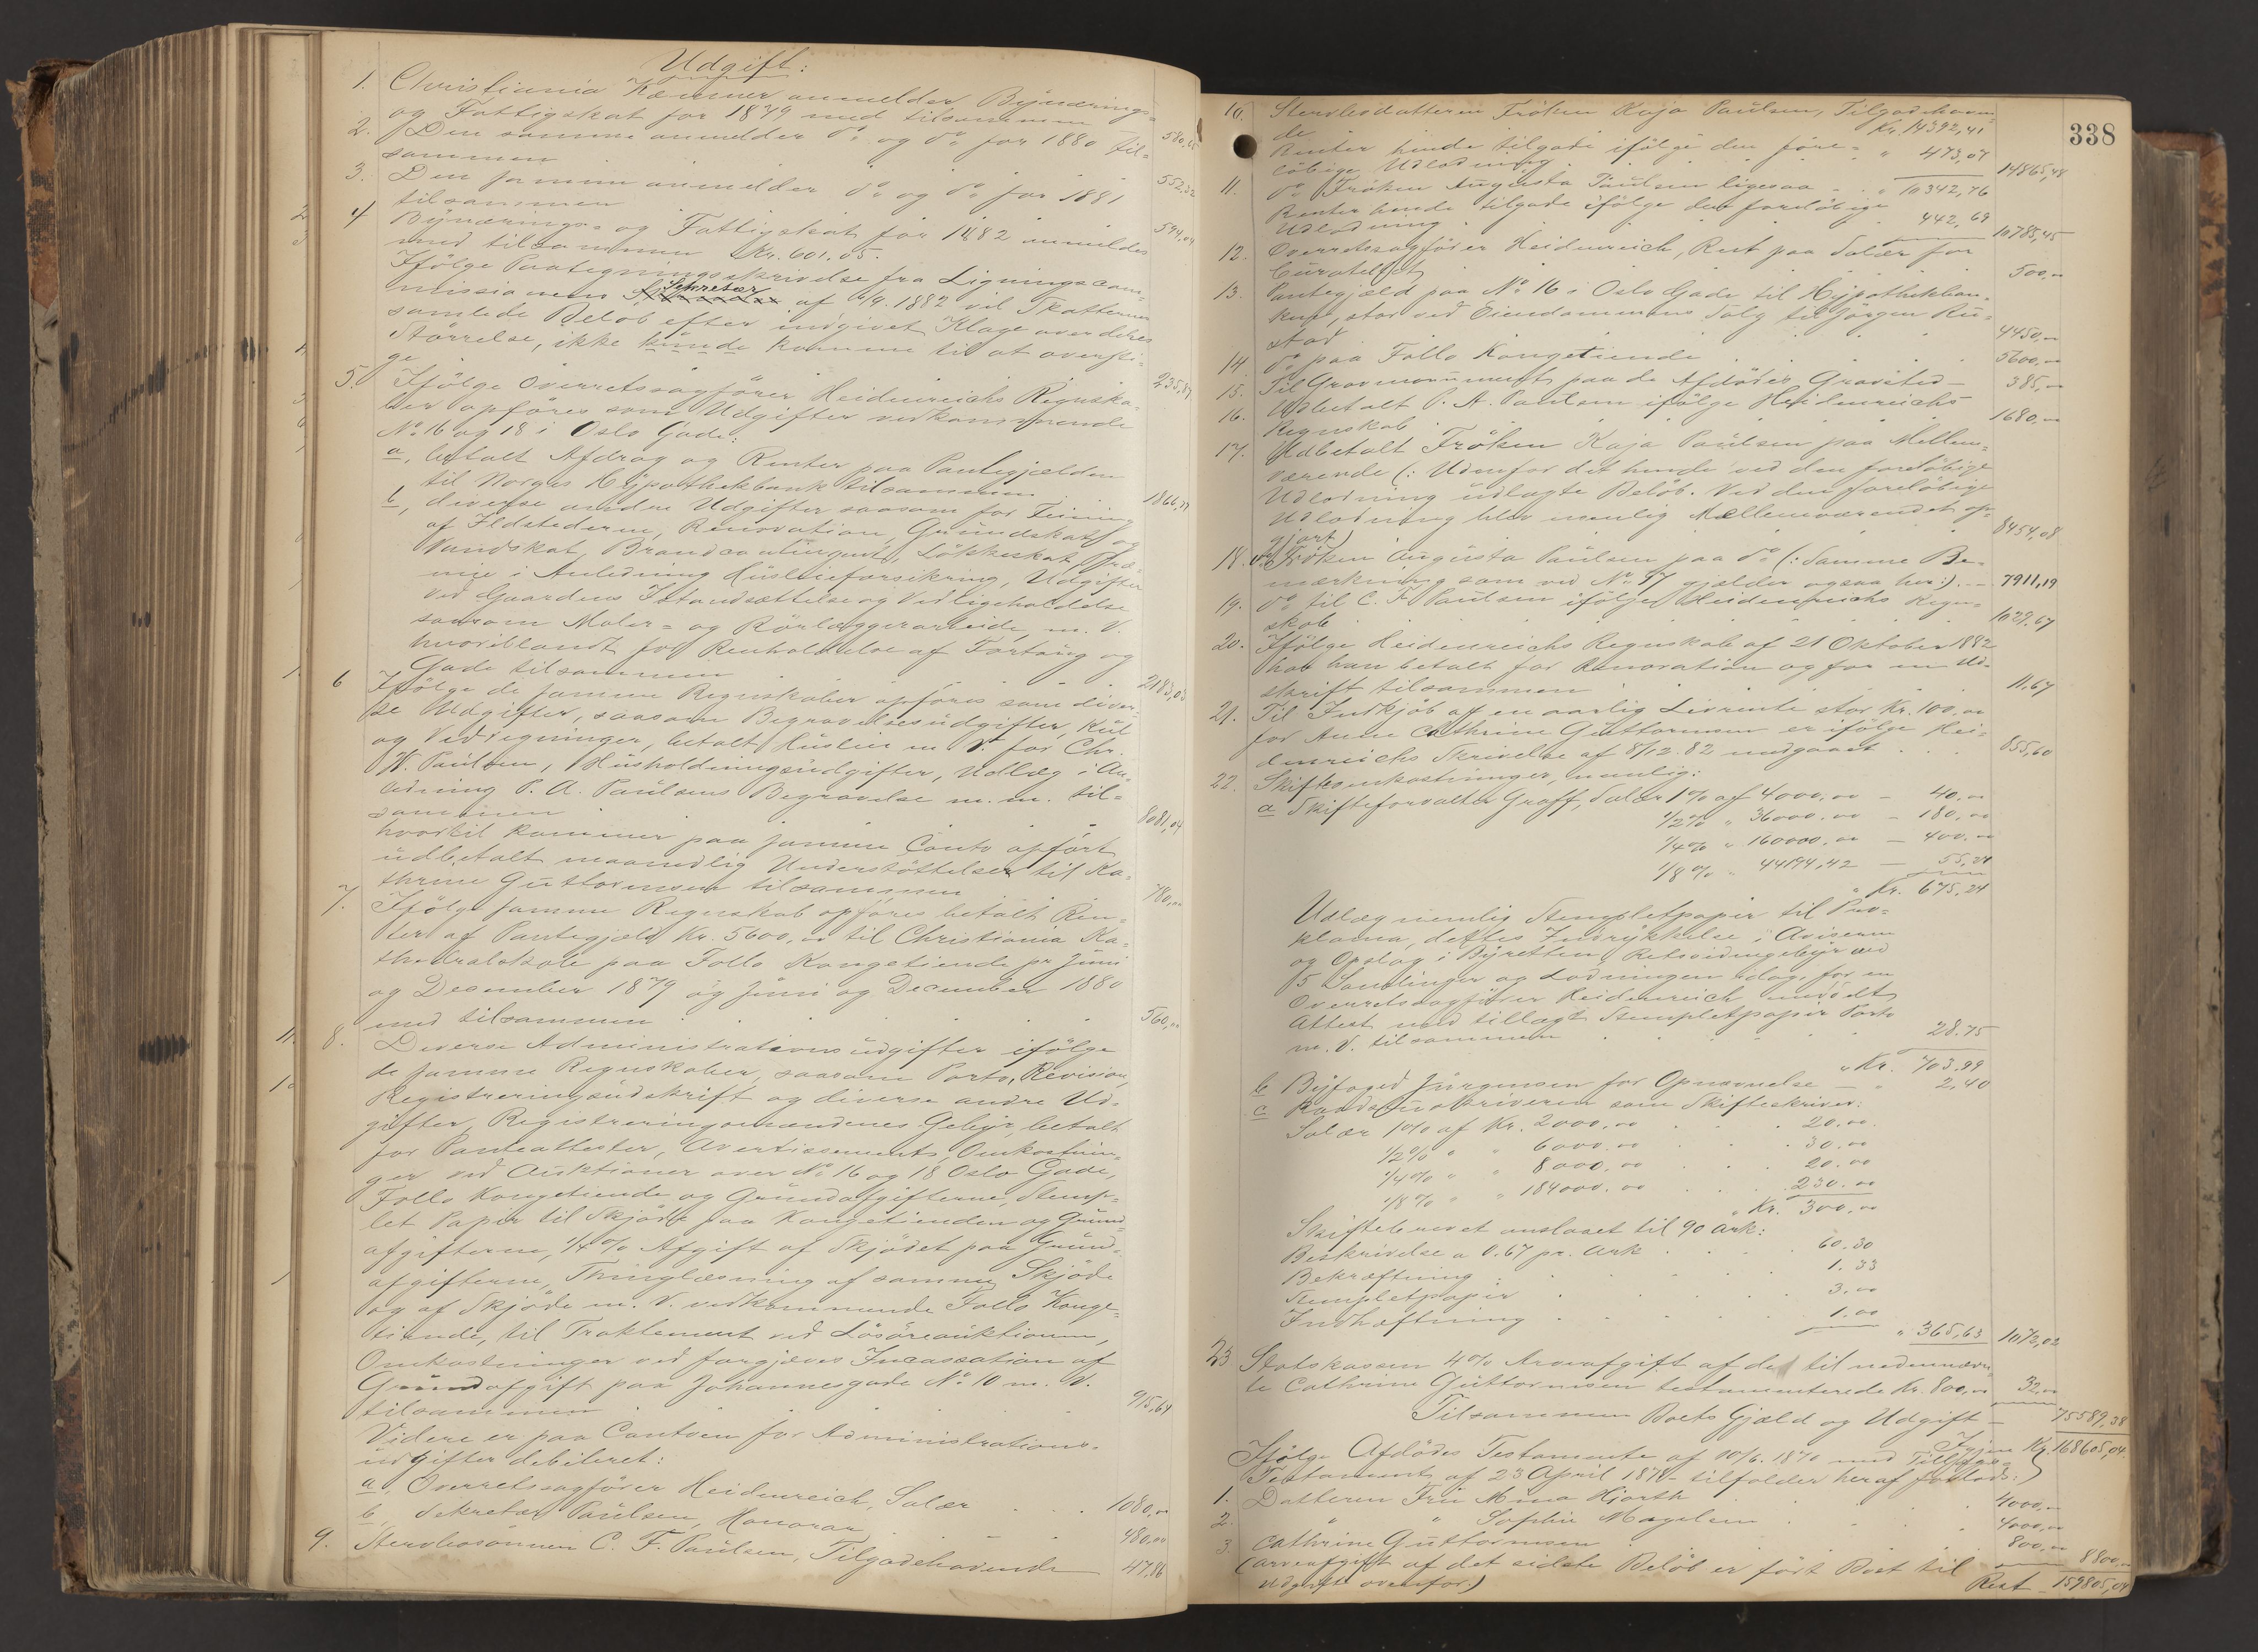 Udgift:
1. Christiania Kæmner anmelder Bynærings-
og Fattigskat for 1879 med tilsammen 580,65
2. Den samme anmelder do og do for 1880 til-
sammen 552,32
3. Den samme anmelder do og do for 1881
tilsammen 594,04
4 Bynærings- og Fattigskat for 1882 anmeldes
med tilsammen Kr. 601.05.
Ifølge Paategningsskrivelse fra Ligningscom-
missionens Sekretær af 4/9. 1882 vil Skatternes
samlede Beløb efter indgivet Klage over deres
Størrelse, ikke kunde komme til at oversti-
ge 235,87
5. Ifølge Overretssagfører Heidenreichs Regnska-
ber opføres som Udgifter vedkommende
No 16 og 18 i Oslo Gade:
a, betalt Afdrag og Renter paa Pantegjælden
til Norges Hypothekbank tilsammen 1866,37
b, diverse andre Udgifter saasom for Feining
af Ildstederne, Renovation, Grundskat og
Vandskat, Brandcontingent, Løkkeskat, Præ-
mie i Anledning Huslieforsikring, Udgifter
ved Gaardens Istandsættelse og Vedligeholdelse
saasom Maler- og Rørlæggerarbeide m. V.
hvoriblandt for Renholdelse af Fortoug og
Gade tilsammen 2183,03
6 Ifølge de samme Regnskaber opføres som diver-
se Udgifter, saasom Begravelsesudgifter, Kul
og Vedregninger, betalt Husleie m. V. for Chr.
W. Paulsen, Husholdningsudgifter, Udlæg i An-
ledning P. A. Paulsens Begravelse m. m. til-
sammen 8081,04
hvortil kommer paa samme Conto opført
udbetalt maanedlig Understøttelse til Ka-
thrine Guttormsen tilsammen 780,00
7. Ifølge samme Regnskab opføres betalt Ren-
ter af Pantegjæld Kr. 5600,00 til Christiania Ka-
thedralskole paa Follo Kongetiende pr Juni
og December 1879 og Juni og December 1880
med tilsammen 560,00
8. Diverse Administrationsudgifter ifølge
de samme Regnskaber, saasom Porto, Revision,
Registreringsudskrift og diverse andre Ud-
gifter, Registreringsmændenes Gebyr, betalt
for Panteattester, Avertissements, Omkostnin-
ger ved Auktioner over No 16 og 18 Oslo Gade,
Follo Kongetiende og Grundafgifterne, Stemp-
let Papir til Skjøde paa Kongetienden og Grund-
afgifterne, 1/4 % Afgift af Skjødet paa Grund-
afgifterne, Thinglæsning af samme Skjøde
og af Skjøde m. V. vedkommende Follo Konge-
tiende, til Traktement ved Løsøreauktionen,
Omkostninger ved forgjæves Incassation af
Grundafgift paa Johannesgade No 10 m. V.
tilsammen 915,64
Videre er paa Contoen for Administrations-
udgifter debiteret:
a, Overretssagfører Heidenreich, Salær 1080,00
b, Sekretær Paulsen, Honorar 480,00
9. Stervbosønnen C. F. Paulsen, Tilgodehavende 47,86
338
10. Stervbodatteren Frøken Kaja Paulsen, Tilgodehaven-
de Kr. 14392,41
Renter hende tilgode ifølge den fore-
løbige Udlodning " 473,07 14865,48
11. do Frøken Augusta Paulsen ligesaa - " 10342,76
Renter hende tilgode ifølge den foreløbige
Udlodning 442,69 10785,45
12. Overretssagfører Heidenreich, Rest paa Salær for
Curatelet 500,00
13. Pantegjæld paa No 16 i Oslo Gade til Hypothekban-
ken, stor ved Eiendommens Salg til Jørgen Ru-
stad 4450,00
14 do paa Follo Kongetiende 5600,00
15. Til Gravmonument paa de Afdødes Gravsted - 385,00
16. Udbetalt P. A. Paulsen ifølge Heidenreichs
Regnskab 1680,00
17. Udbetalt Frøken Kaja Paulsen paa Mellem-
værende (: Udenfor det hende ved den foreløbige
Udlodning udlagte Beløb. Ved den foreløbige
Udlodning blev nemlig Mellemværendet op-
gjort) 8454,08
18. do Frøken Augusta Paulsen paa do (: Samme Be-
mærkning som ved No 17 gjælder ogsaa her:) - 7911,19
19. do til C. F. Paulsen ifølge Heidenreichs Regn-
skab 1029,67
20. Ifølge Heidenreichs Regnskab af 21 Oktober 1882
har han betalt for Renovation og for en Ud-
skrift tilsammen 11,67
21. Til Indkjøb af en aarlig Livrente stor Kr. 100,00
for Anne Cathrine Guttormsen er ifølge Hei-
denreichs Skrivelse af 8/12. 82 medgaaet 855,60
22. Skifteomkostninger, nemlig:
a Skifteforvalter Graff, Salær 1 % af 4000,00 - 40,00
1/2 % " 36000.00 - 180,00
1/4 % " 160000,00 - 400,00
1/8 % " 44194,42 - 55,24
" Kr. 675,24
Udlæg nemlig Stempletpapir til Pro-
klama, dettes Indrykkelse i Aviserne
og Opslag i Byretten, Retsvidnegebyr ved
5 Samlinger og Lodningen idag, for en
Overretssagfører Heidenreich meddelt
Attest med tillagt Stempletpapir Porto
m. V. tilsammen 28.75
" Kr. 703.99
b Byfoged Jürgensen for Opnævnelse - " 2,40
c Raadstueskriveren som Skifteskriver:
Salær 1 % af Kr. 2000,00 20,00
1/2 % " " 6000.00 30,00
1/4 % " " 8000.00 20.00
1/8 % " " 184000.00 230.00
" Kr. 300,00
Skiftebrevet anslaaet til 90 Ark:
Beskrivelse a 0.67 pr. Ark 60.30
Bekræftning 1.33
Stempletpapir 3,00
Indhæftning 1.00
" 365,63 1072,02
23 Statskassen 4 % Arveafgift af det til nedennævn-
te Cathrine Guttormsen testamenterede Kr. 800,00 32,00
Tilsammen Boets Gjæld og Udgift - 75589,38
Igjen Kr. 168605,04.
Ifølge Afdødes Testamente af 10/6. 1870 med Tillægs-
Testament af 23 April 1878 tilfalder heraf forlods:
1. Datteren Fru Mina Hjorth 4000,00
2. " " Sophie Magelsen 4000,00
3. Cathrine Guttormsen 800,00 8800,00
(Arveafgift af det sidste Beløb er ført Boet til
Udgift ovenfor.) Rest - 159805,04